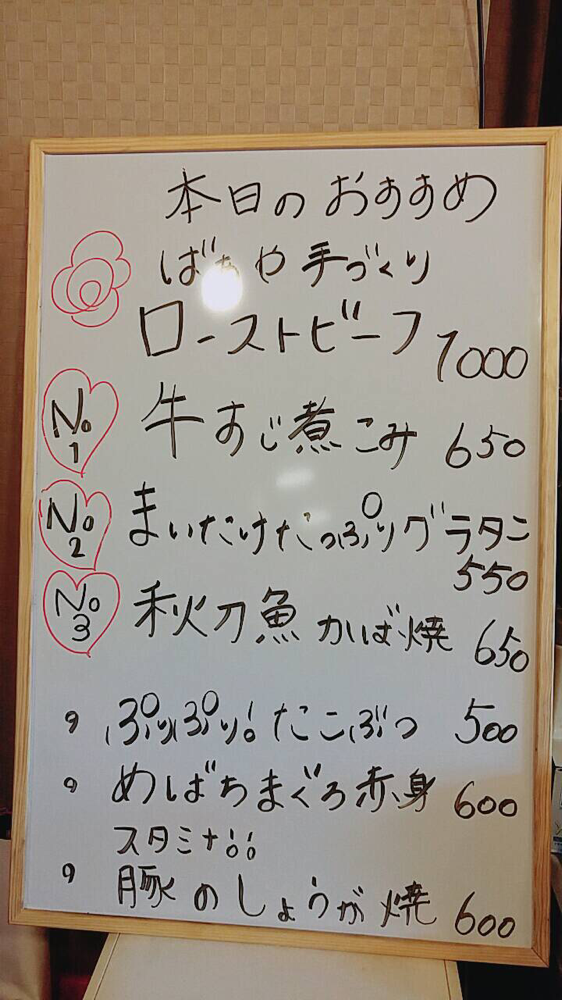 本日のおすすめ
ばちや手づくり
ローストビーフ 1000
No 1 牛すじ煮こみ 650
No 2 まいたけたっぷりグラタン
550
No 3 秋刀魚かば焼 650
ぷりぷり!たこぶつ 500
めばちまぐろ赤身 600
スタミナ!!
豚のしょうが焼 600